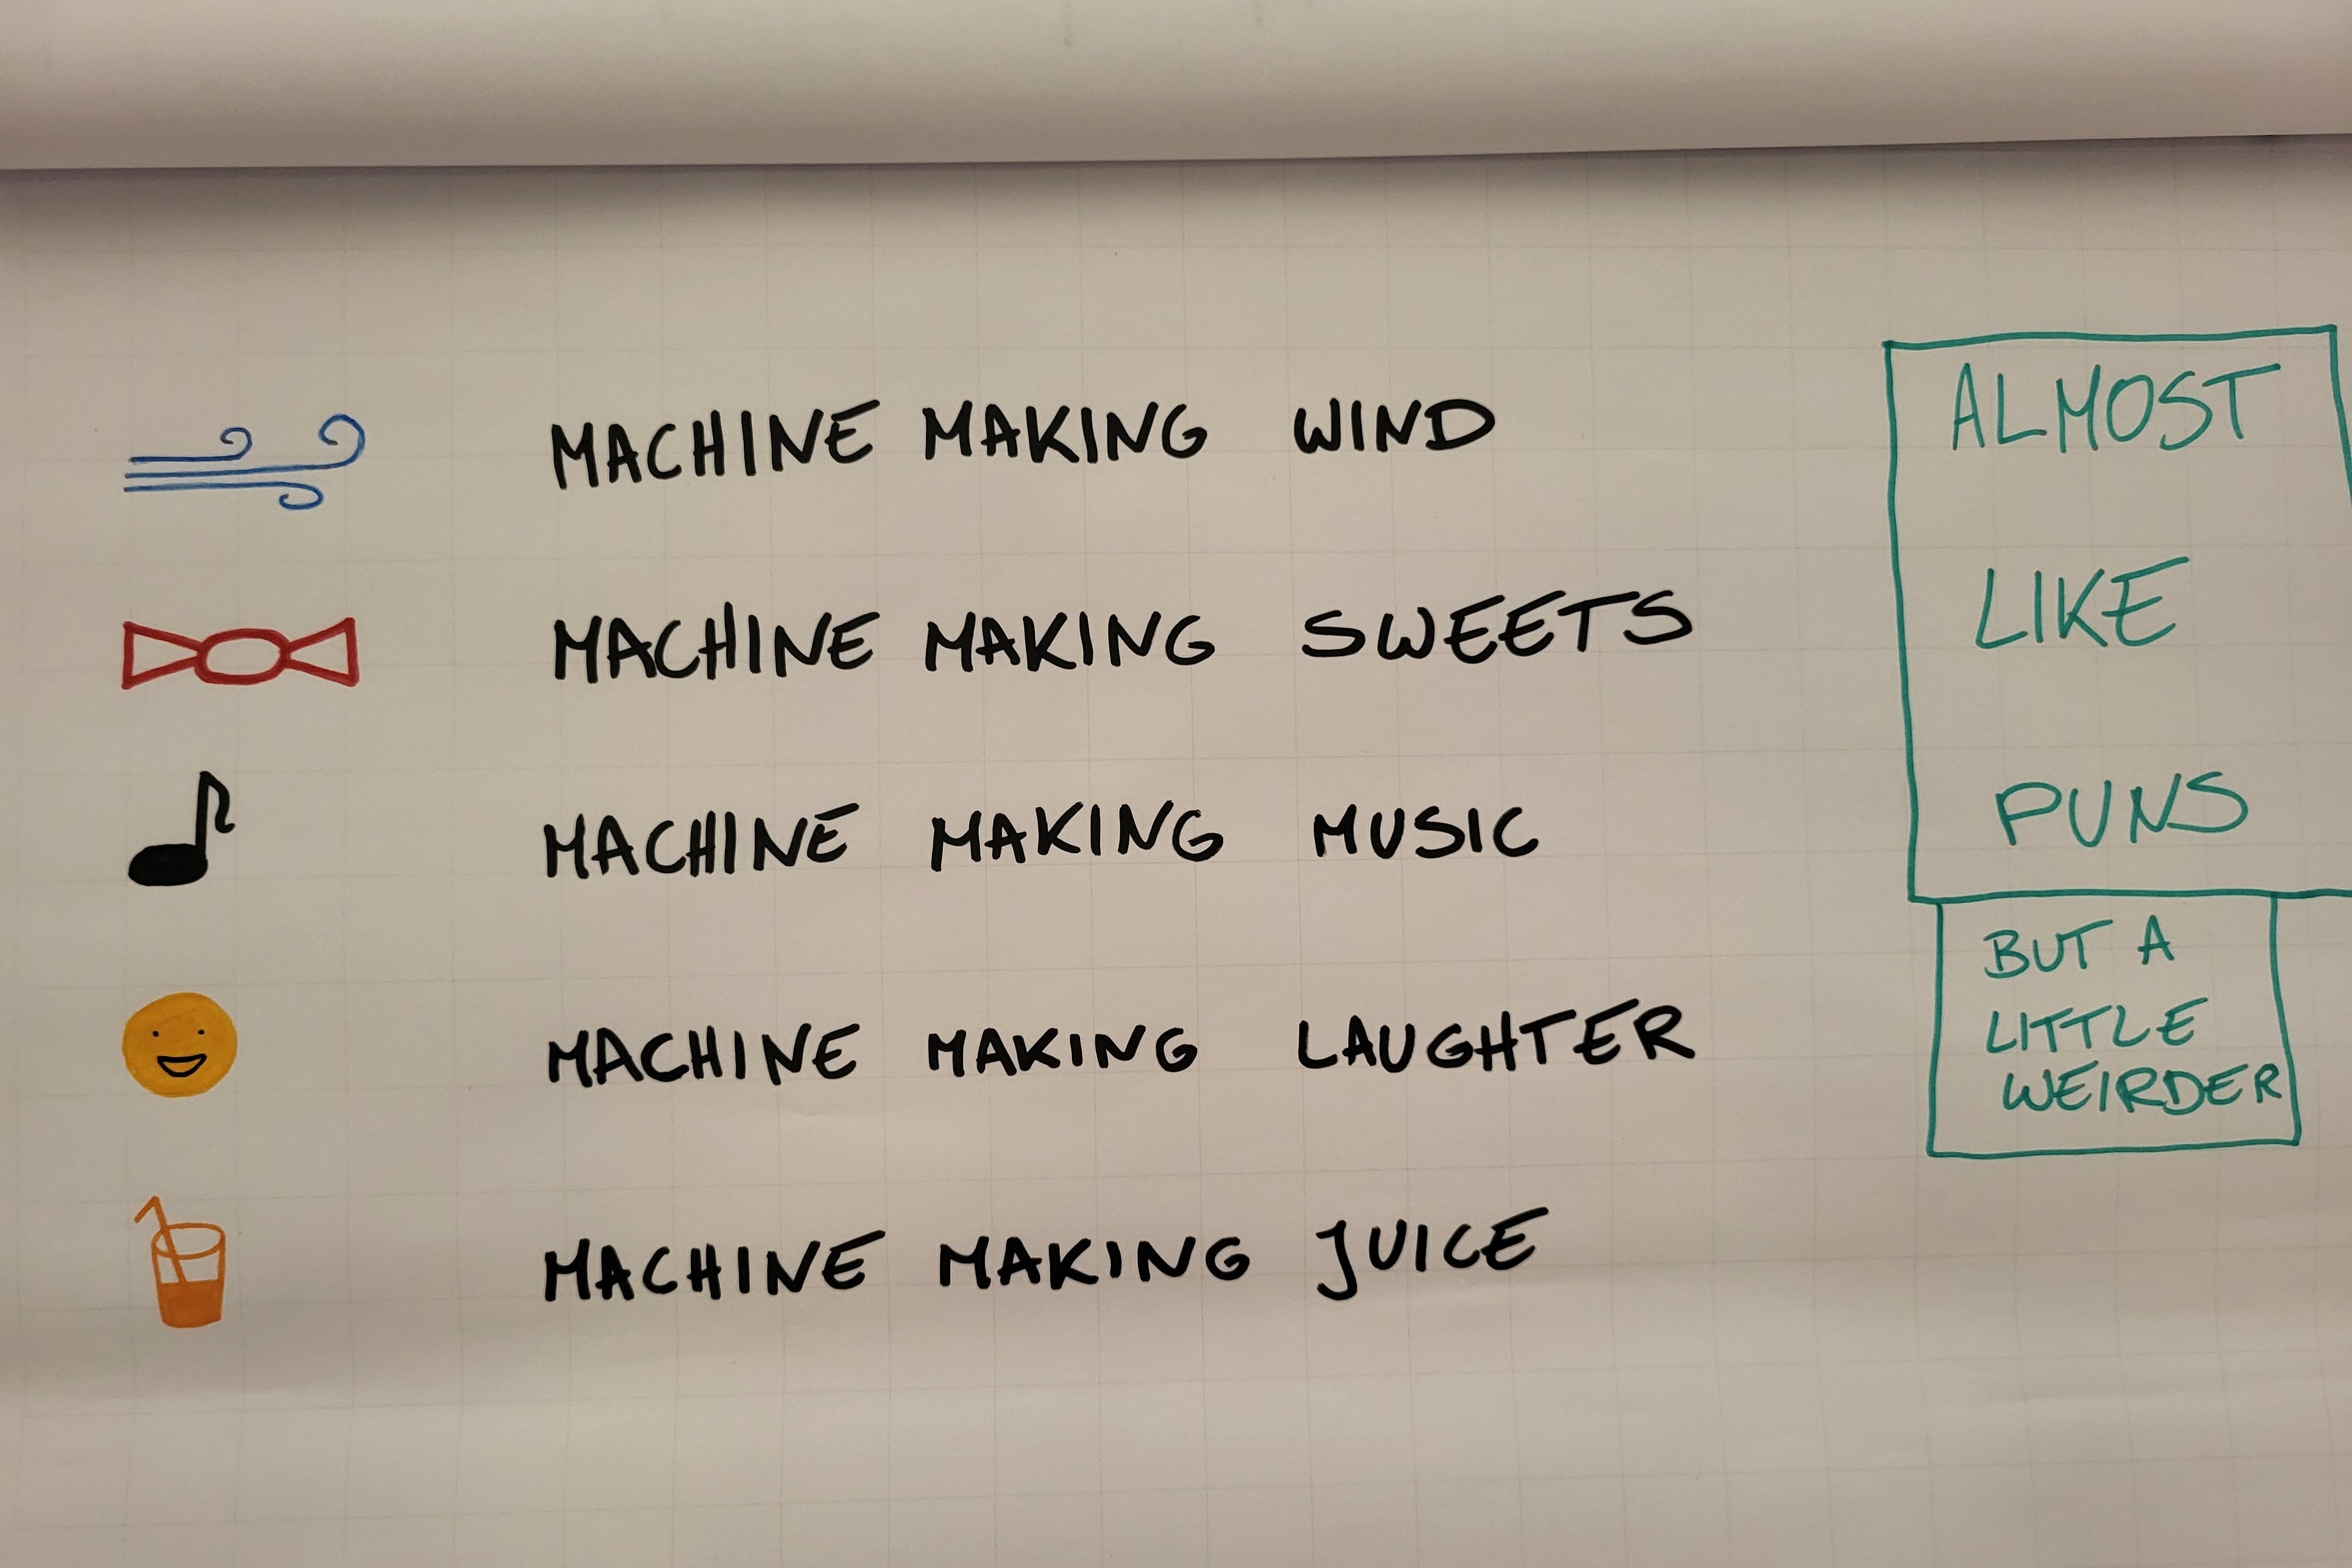 MACHINE MAKING WIND
MACHINE MAKING SWEETS
MACHINE MAKING MUSIC
MACHINE MAKING LAUGHTER
MACHINE MAKING JUICE
ALMOST
LIKE
PUNS
BUT A
LITTLE
WEIRDER